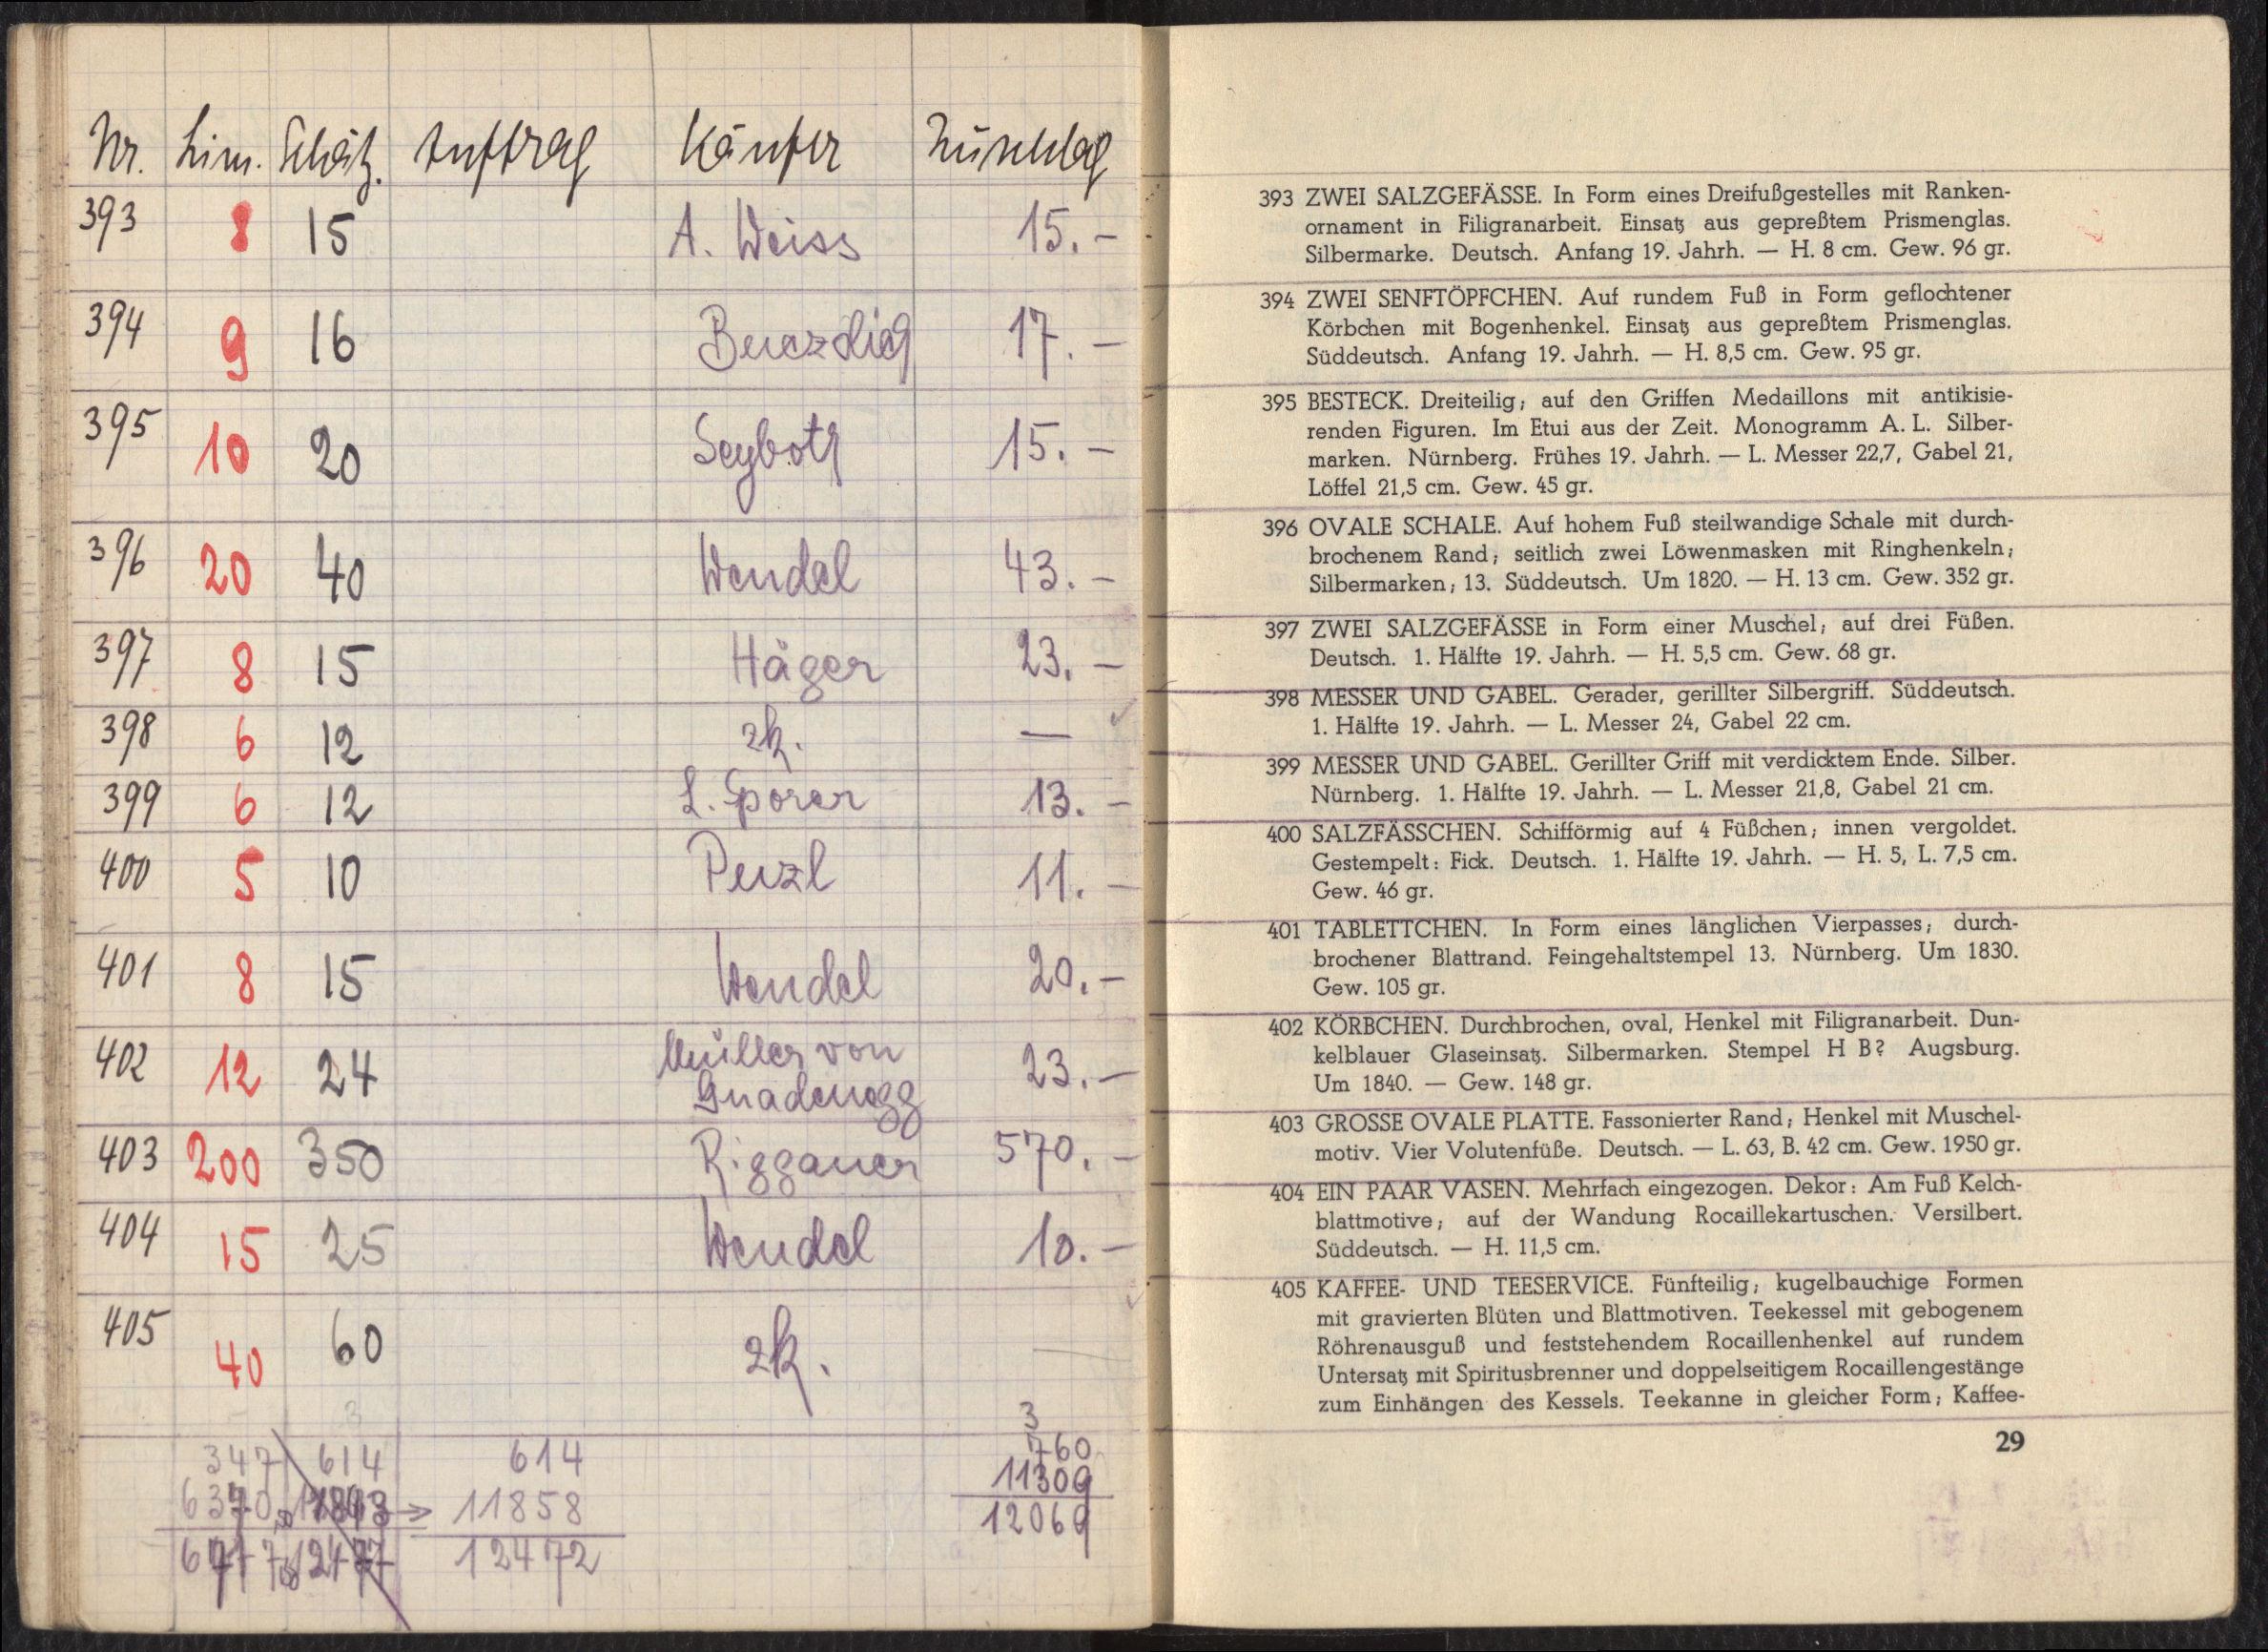 Nr. Lim. Schätz. Auftrag Käufer Zuschlag
393 8 15 A. Weiss 15.-
394 9 16 17.-
395 10 20 15.-
396 20 40 Wendel 43.-
397 8 15 Häger 23.-
398 6 12 zk. —
399 6 12 L. Sporer 13.-
400 5 10 11.-
401 8 15 Wendel 20.-
402 12 24 Müller von
Gnadenegg 23.-
403 200 350 Riggauer 570.-
404 15 25 Wendel 10.-
405 40 60 zk. —
3
347 614 614 760
11858 11309
12472 12069
393 ZWEI SALZGEFÄSSE. In Form eines Dreifußgestelles mit Ranken-
ornament in Filigranarbeit. Einsatz aus gepreßtem Prismenglas.
Silbermarke. Deutsch. Anfang 19. Jahrh. — H. 8 cm. Gew. 96 gr.
394 ZWEI SENFTÖPFCHEN. Auf rundem Fuß in Form geflochtener
Körbchen mit Bogenhenkel. Einsatz aus gepreßtem Prismenglas.
Süddeutsch. Anfang 19. Jahrh. — H. 8,5 cm. Gew. 95 gr.
395 BESTECK. Dreiteilig; auf den Griffen Medaillons mit antikisie-
renden Figuren. Im Etui aus der Zeit. Monogramm A. L. Silber-
marken. Nürnberg. Frühes 19. Jahrh. — L. Messer 22,7, Gabel 21,
Löffel 21,5 cm. Gew. 45 gr.
396 OVALE SCHALE. Auf hohem Fuß steilwandige Schale mit durch-
brochenem Rand; seitlich zwei Löwenmasken mit Ringhenkeln;
Silbermarken; 13. Süddeutsch. Um 1820. — H. 13 cm. Gew. 352 gr.
397 ZWEI SALZGEFÄSSE in Form einer Muschel; auf drei Füßen.
Deutsch. 1. Hälfte 19. Jahrh. — H. 5,5 cm. Gew. 68 gr.
398 MESSER UND GABEL. Gerader, gerillter Silbergriff. Süddeutsch.
1. Hälfte 19. Jahrh. — L. Messer 24, Gabel 22 cm.
399 MESSER UND GABEL. Gerillter Griff mit verdicktem Ende. Silber.
Nürnberg. 1. Hälfte 19. Jahrh. — L. Messer 21,8, Gabel 21 cm.
400 SALZFÄSSCHEN. Schifförmig auf 4 Füßchen; innen vergoldet.
Gestempelt: Fick. Deutsch. 1. Hälfte 19. Jahrh. — H. 5, L. 7,5 cm.
Gew. 46 gr.
401 TABLETTCHEN. In Form eines länglichen Vierpasses; durch-
brochener Blattrand. Feingehaltstempel 13. Nürnberg. Um 1830.
Gew. 105 gr.
402 KÖRBCHEN. Durchbrochen, oval, Henkel mit Filigranarbeit. Dun-
kelblauer Glaseinsatz. Silbermarken. Stempel H B? Augsburg.
Um 1840. — Gew. 148 gr.
403 GROSSE OVALE PLATTE. Fassonierter Rand; Henkel mit Muschel-
motiv. Vier Volutenfüße. Deutsch. — L. 63, B. 42 cm. Gew. 1950 gr.
404 EIN PAAR VASEN. Mehrfach eingezogen. Dekor: Am Fuß Kelch-
blattmotive; auf der Wandung Rocaillekartuschen. Versilbert.
Süddeutsch. — H. 11,5 cm.
405 KAFFEE- UND TEESERVICE. Fünfteilig; kugelbauchige Formen
mit gravierten Blüten und Blattmotiven. Teekessel mit gebogenem
Röhrenausguß und feststehendem Rocaillenhenkel auf rundem
Untersatz mit Spiritusbrenner und doppelseitigem Rocaillengestänge
zum Einhängen des Kessels. Teekanne in gleicher Form; Kaffee-
29